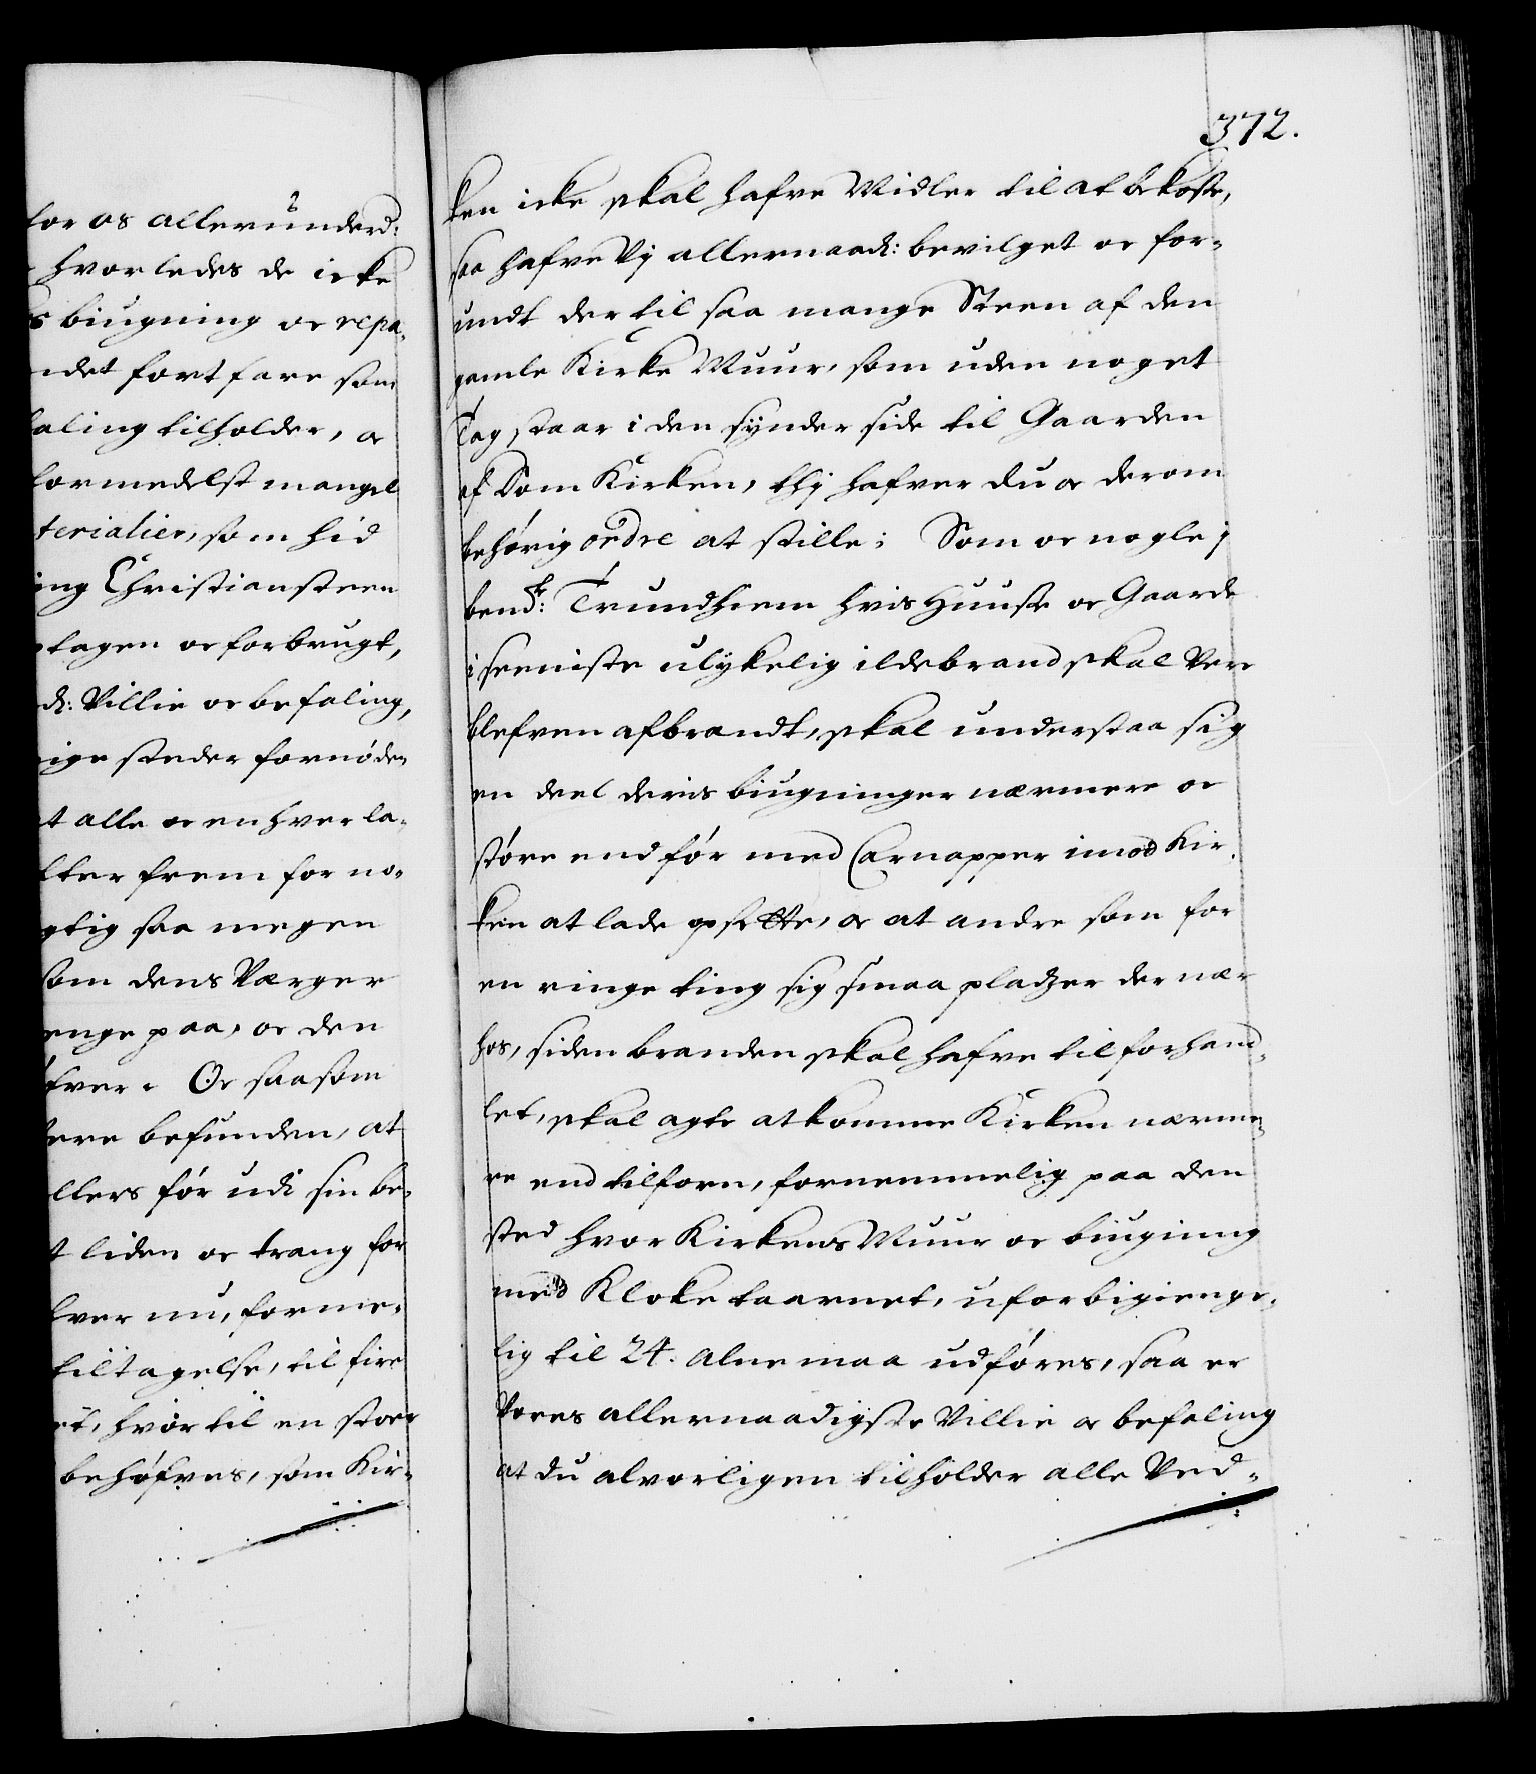 for os allerunderd:
hvorledes de icke
s biugning oc repa-
ndet fortfare som
faling tilholder, oc
formedelst mangel
terialier, som hid
ing Christiansteen
tagen oc forbrugt,
d: Villie oc befaling,
ige steder fornöden
t alle oc enhver la-
tter frem for no-
gtig saa megen
som dens Værger
enge paa, oc den
fver. Oc saasom
ere befunden, at
llers för udi sin be-
t liden oc trang for
lver nu, forme-
tiltagelse, til fire
et, hvortil en stoer
behöfves, som Kir-
372.
ken icke skal hafve Midler til at bekoste,
saa hafve Vj allernaad: bevilget oc for-
undt der til saa mange Steen af den
gamle Kirke Muur, som uden noget
Tag staar i den synder side til Gaarden
af Dom Kirken, thj hafver du oc derom
behörig ordre at stille; Som oc nogle j
bemd: Trundhiem hvis Huuse oc Gaarde
i seeniste ulykelig ildebrand skal vere
blefven afbrandt, skal understaa sig
en deel deris biugninger nærmere oc
större end för med Carnapper imod Kir-
ken at lade opsette, oc at andre som for
en ringe ting sig smaa pladzer der nær
hos, siden branden skal hafve tilforhand-
let, skal agte at komme Kirken nærme-
re end tilforn, fornemmelig paa den
sted hvor Kirkens Muur oc biugning
med Kloke taarnet, uforbigienge-
lig til 24. Alne maa udföres, saa er
Vores allernaadigste Villie oc befaling
at du alvorligen tilholder alle Ved-